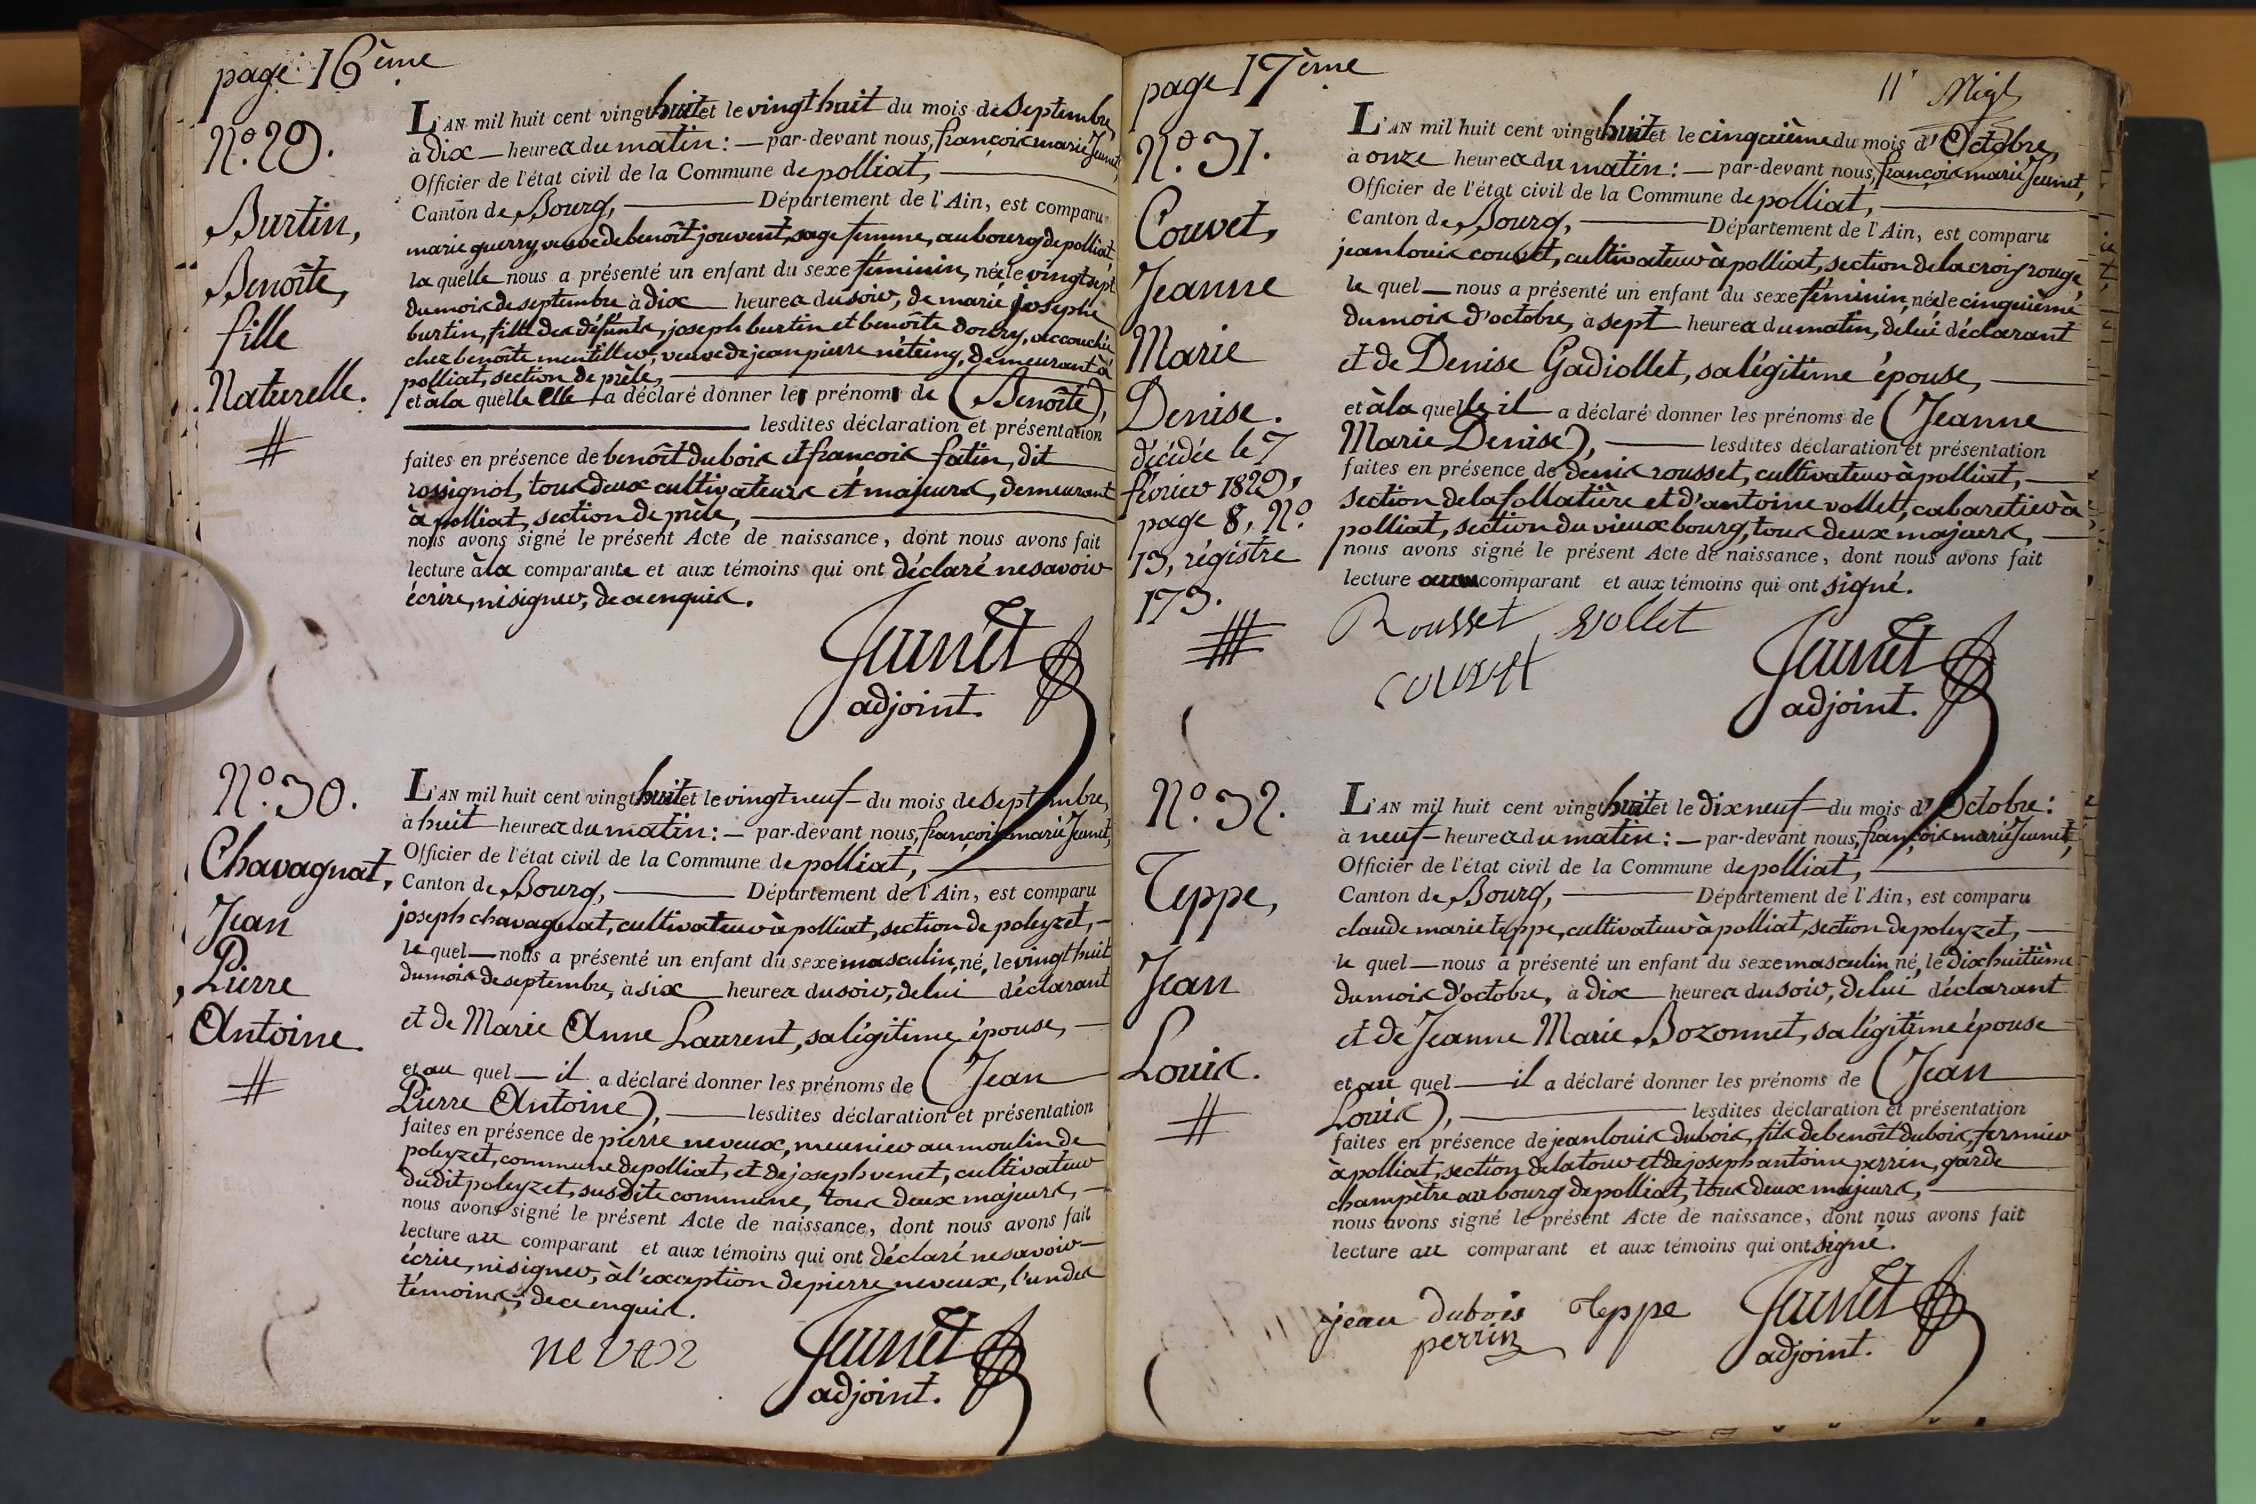 page 16ème
N.º 29.
Burtin,
Benoîte,
fille
Naturelle.
L'AN mil huit cent vingt huit et le vingt huit du mois de Septembre,
à dix — heures du matin : — par-devant nous, françois marie Jeunet,
Officier de l'état civil de la Commune de polliat,
Canton de Bourg, Département de l'Ain, est comparu
marie guerry, veuve de benoît jouvent, sage femme, au bourg de polliat,
la quelle nous a présenté un enfant du sexe féminin, née le vingt sept
du mois de septembre à dix heures du soir, de marie josephe
burtin, fille des défunts, joseph burtin et benoîte dorry, accouchée
chez benoîte mentillier, veuve de jean pierre néteing, demeurant à
polliat, section de prèle,
et à la quelle elle a déclaré donner les prénoms de (Benoîte),
lesdites déclaration et présentation
faites en présence de benoît dubois et françois fatin, dit
rossignol, tous deux cultivateurs et majeurs, demeurant
à polliat, section de prèle,
nous avons signé le présent Acte de naissance, dont nous avons fait
lecture à la comparante et aux témoins qui ont déclaré ne savoir
écrire, ni signer, de ce enquis.
Jeunet
adjoint.
N.º 30.
Chavagnat,
Jean
Pierre
Antoine.
L'AN mil huit cent vingt huit et le vingt neuf — du mois de Septembre,
à huit heures du matin : — par-devant nous, françois marie Jeunet,
Officier de l'état civil de la Commune de polliat,
Canton de Bourg, Département de l'Ain, est comparu
joseph chavagnat, cultivateur à polliat, section de poleyzet, —
le quel — nous a présenté un enfant du sexe masculin, né, le vingt huit
du mois de septembre, à six heures du soir, de lui déclarant
et de Marie Anne Laurent, sa légitime épouse, —
et au quel — il a déclaré donner les prénoms de (Jean
Pierre Antoine), lesdites déclaration et présentation
faites en présence de pierre neveux, meunier au moulin de
poleyzet, commune de polliat, et de joseph venet, cultivateur
du dit poleyzet, susdite commune, tous deux majeurs, —
nous avons signé le présent Acte de naissance, dont nous avons fait
lecture au comparant et aux témoins qui ont déclaré ne savoir
écrire, ni signer, à l'exception de pierre neveux, l'un des
témoins, de ce enquis.
neveux
Jeunet
adjoint.
page 17ème
11e
N.º 31.
Couvet,
Jeanne
Marie
Denise.
décédée le 7
février 1829,
page 8, N.º
13, régistre
173.
L'AN mil huit cent vingt huit et le cinquième du mois d'Octobre,
à onze heures du matin : — par-devant nous, françois marie Jeunet,
Officier de l'état civil de la Commune de polliat,
Canton de Bourg, Département de l'Ain, est comparu
jean louis couvet, cultivateur à polliat, section de la croix rouge,
le quel — nous a présenté un enfant du sexe féminin, née le cinquième
du mois d'octobre, à sept heures du matin, de lui déclarant
et de Denise Gadiollet, sa légitime épouse, —
et à la quelle il a déclaré donner les prénoms de (Jeanne
Marie Denise), lesdites déclaration et présentation
faites en présence de denis rousset, cultivateur à polliat, —
section de la follatière et d'antoine vollet, cabaretier à
polliat, section du vieux bourg, tous deux majeurs, —
nous avons signé le présent Acte de naissance, dont nous avons fait
lecture au comparant et aux témoins qui ont signé.
Rousset vollet
couvet
Jeunet
adjoint.
N.º 32.
Teppe,
Jean
Louis.
L'AN mil huit cent vingt huit et le dix neuf — du mois d'Octobre :
à neuf — heures du matin : — par-devant nous, françois marie Jeunet,
Officier de l'état civil de la Commune de polliat,
Canton de Bourg, Département de l'Ain, est comparu
claude marie teppe, cultivateur à polliat, section de poleyzet, —
le quel — nous a présenté un enfant du sexe masculin, né, le dix huitième
du mois d'octobre, à dix heures du soir, de lui déclarant
et de Jeanne Marie Bozonnet, sa légitime épouse
et au quel — il a déclaré donner les prénoms de (Jean
Louis), lesdites déclaration et présentation
faites en présence de jean louis dubois, fils de benoît dubois, fermier
à polliat, section de la tour et de joseph antoine perrin, garde
champêtre au bourg de polliat, tous deux majeurs, —
nous avons signé le présent Acte de naissance, dont nous avons fait
lecture au comparant et aux témoins qui ont signé.
jean dubois Teppe
perrin
Jeunet
adjoint.